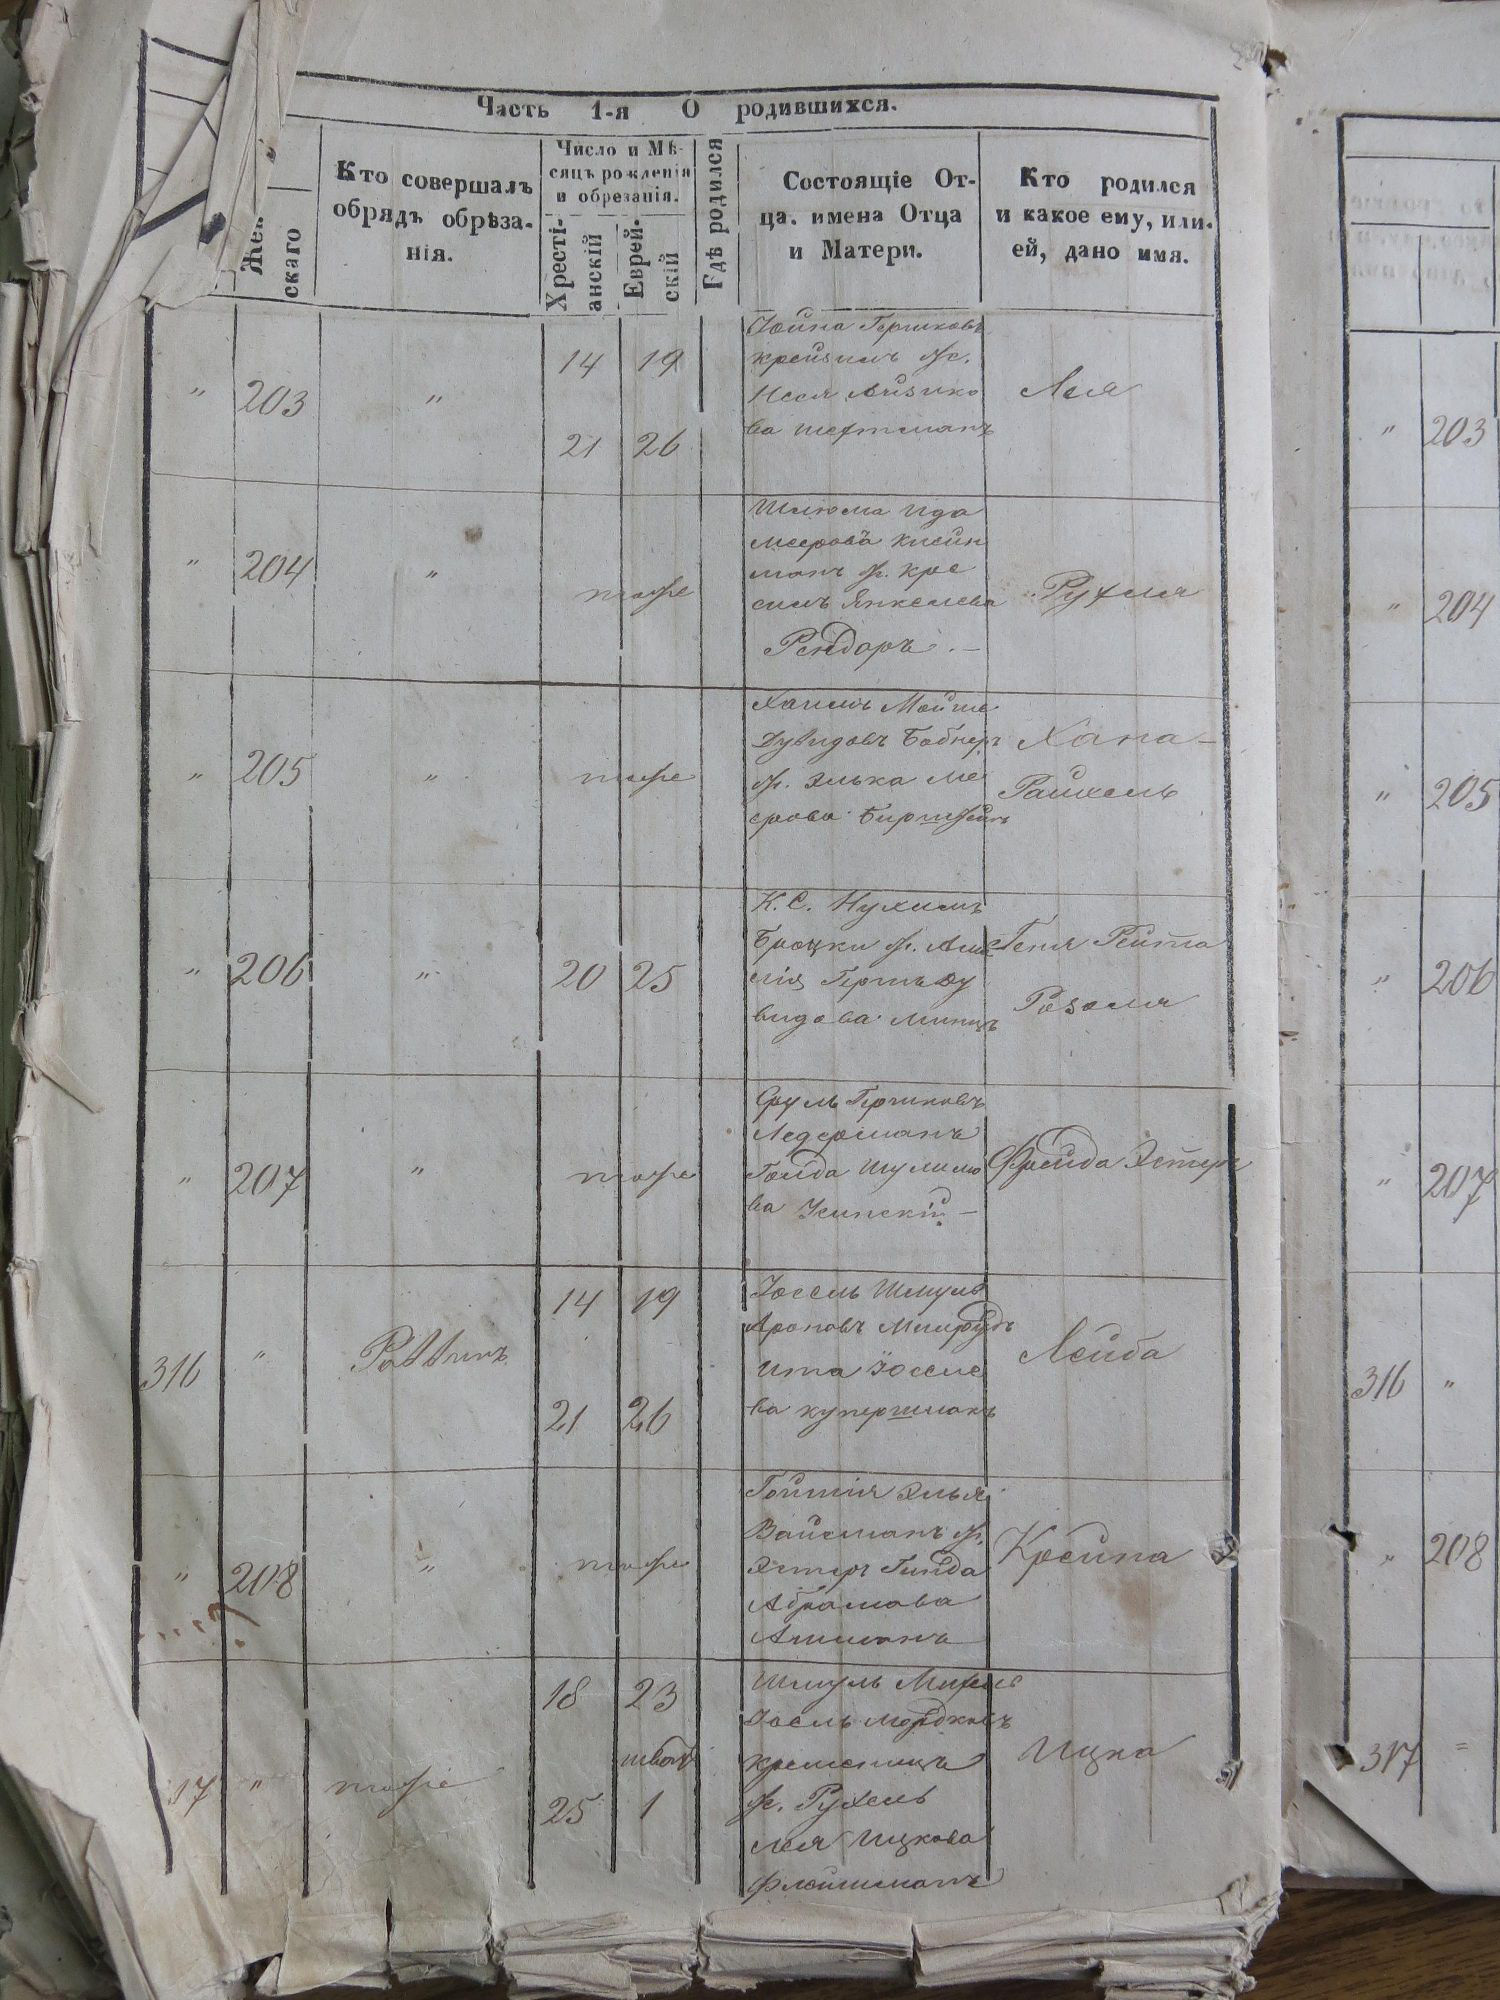 Часть 1-я О родившихся.
Жен
скаго
Кто совершалъ
обрядъ обрѣза-
нія.
Число и Мѣ-
сяцъ рожденія
и обрезанія.
Хрестi-
анскій
Еврей-
скій
Гдѣ родился
Состоящіе От-
ца, имена Отца
и Матери.
Кто родился
и какое ему, или
ей, дано имя.
" 203 " 14 19
21 26
Гершковъ
Лея
" 204 " тоже
Шлюма Ида
Мееровъ
манъ ж. Крес
силъ Янкелева
Рендаръ.
Рухля
" 205 " тоже
Хаимъ Мойше
Дувидовъ
ж. Элька Ме
ерова
Хана-
Райхель
" 206 " 20 25
К. С. Нухимъ
Броцки ж. Ама
лія Гершъ Ду
видова Минцъ
Геня Рейта
Розоля
" 207 " тоже
Сруль Гершковъ
Ледерманъ
Голда Шулимо
ва
Фрейда Эстеръ
316 " Раввинъ 14 19
21 26
Іосель Шмуль
Ароновъ
Ита Іоселе
ва Купершмакъ
Лейба
" 208 " тоже
Элья
Вайсманъ ж.
Эстеръ Гинда
Абрамова
Крейна
17 " тоже 18 23
25 1
Шмуль Михель
Іосель Мордковъ
Кременицъ
ж. Рухель
Лея Ицкова
Флейшманъ
Ицко
" 203
" 204
" 205
" 206
" 207
316 "
" 208
317 "